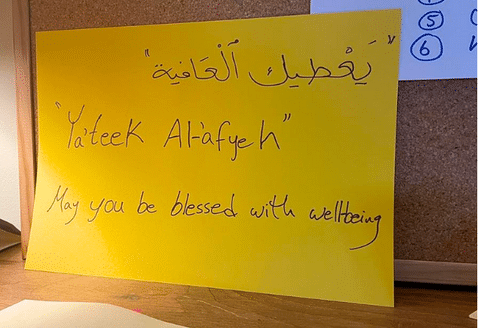 "يَعْطيك ٱلْعَافية"
"Ya'teek Al-'afyeh"
May you be blessed with wellbeing
5
6